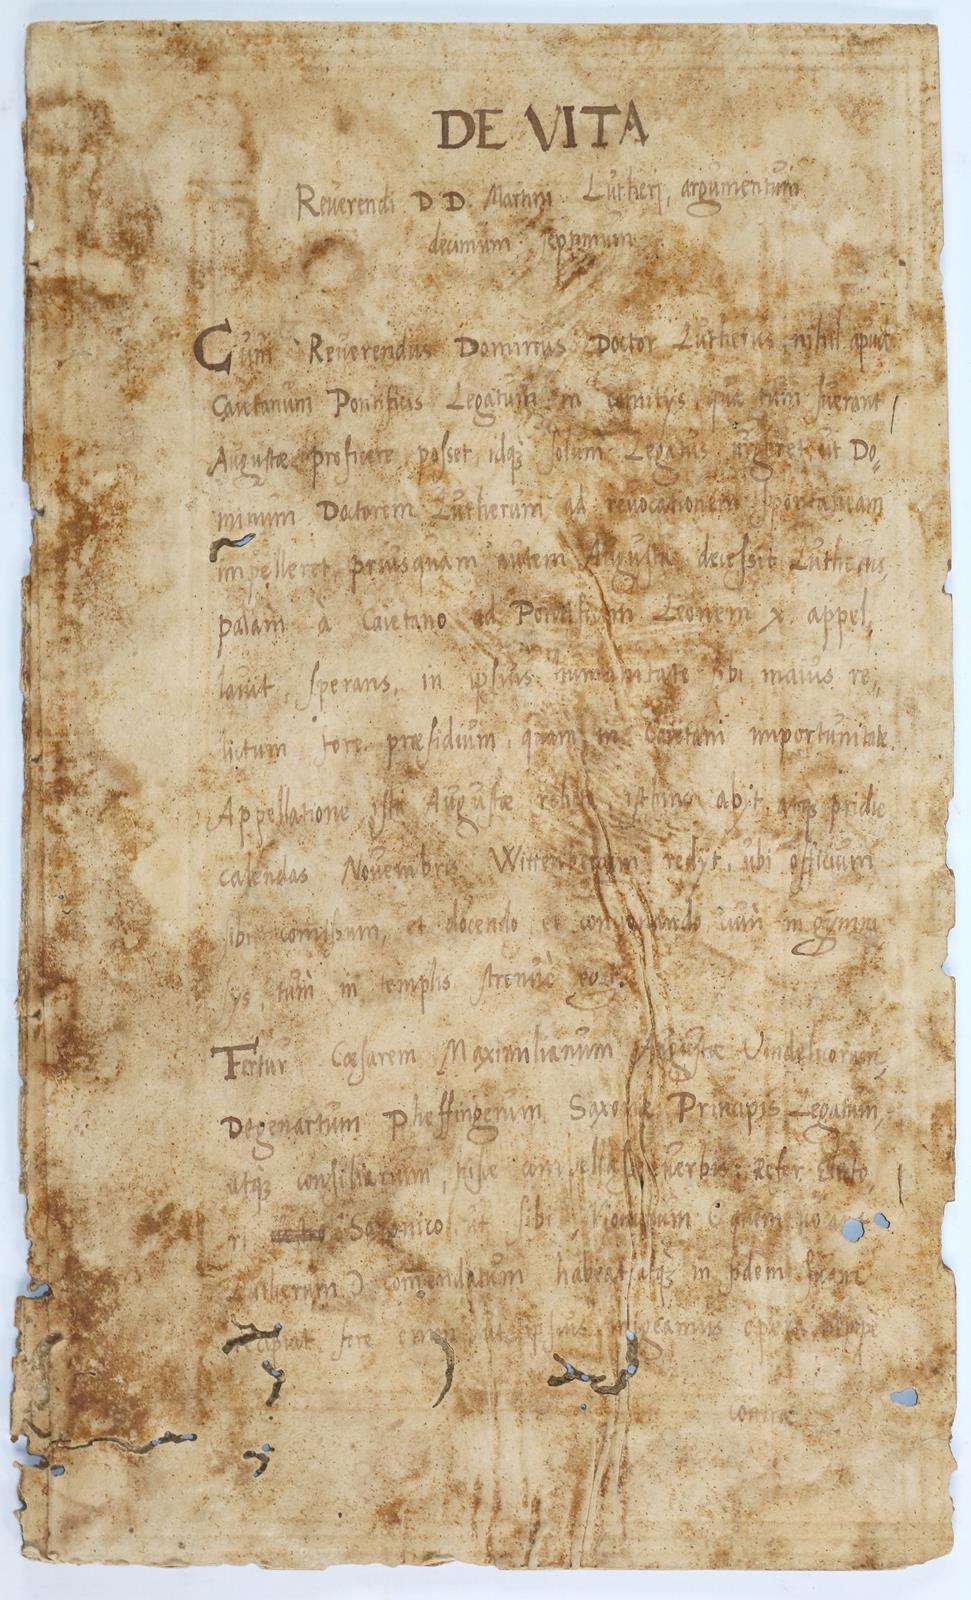 DE VITA
Reuerendi D D. Martini Lutherj, argumentum
decimum septimum
Cum Reuerendus Dominus Doctor Lutherus nihil apud
Caietanum Pontificis Legatum in comitijs, quæ tum fuerant
Augustæ proficere posset, idqȝ solum Legatus urgeret ut Do„
minum Doctorem Lutherum ad reuocationem spontaneam
impelleret, priusquam autem Augusta decessit Lutherus,
palam à Caietano ad Pontificem Leonem X. appel„
lauit, sperans, in ipsius humanitate sibi maius re„
lictum fore præsidium, quam in Caietani importunitate.
Appellatione isti Augustæ relicta, isthinc abijt, atqȝ pridie
calendas Nouembris Wittenbergam redijt, ubi officium
sibi comissum, et docendo et concionando cum in gymna
sijs, tum in templis strenuè
Fertur Cæsarem Maximilianum Augustæ Vindelicorum,
Degenartum Pheffingerum Saxoniæ Principis Legatum,
atqȝ consiliarium, hisce compellasse uerbis: Refer Electo„
ri Saxonico, ut sibi
Lutherum) comendatum habeat, atqȝ in fidem suam
recipiat, fore ut ipsius egeamus opera, nempè
contra